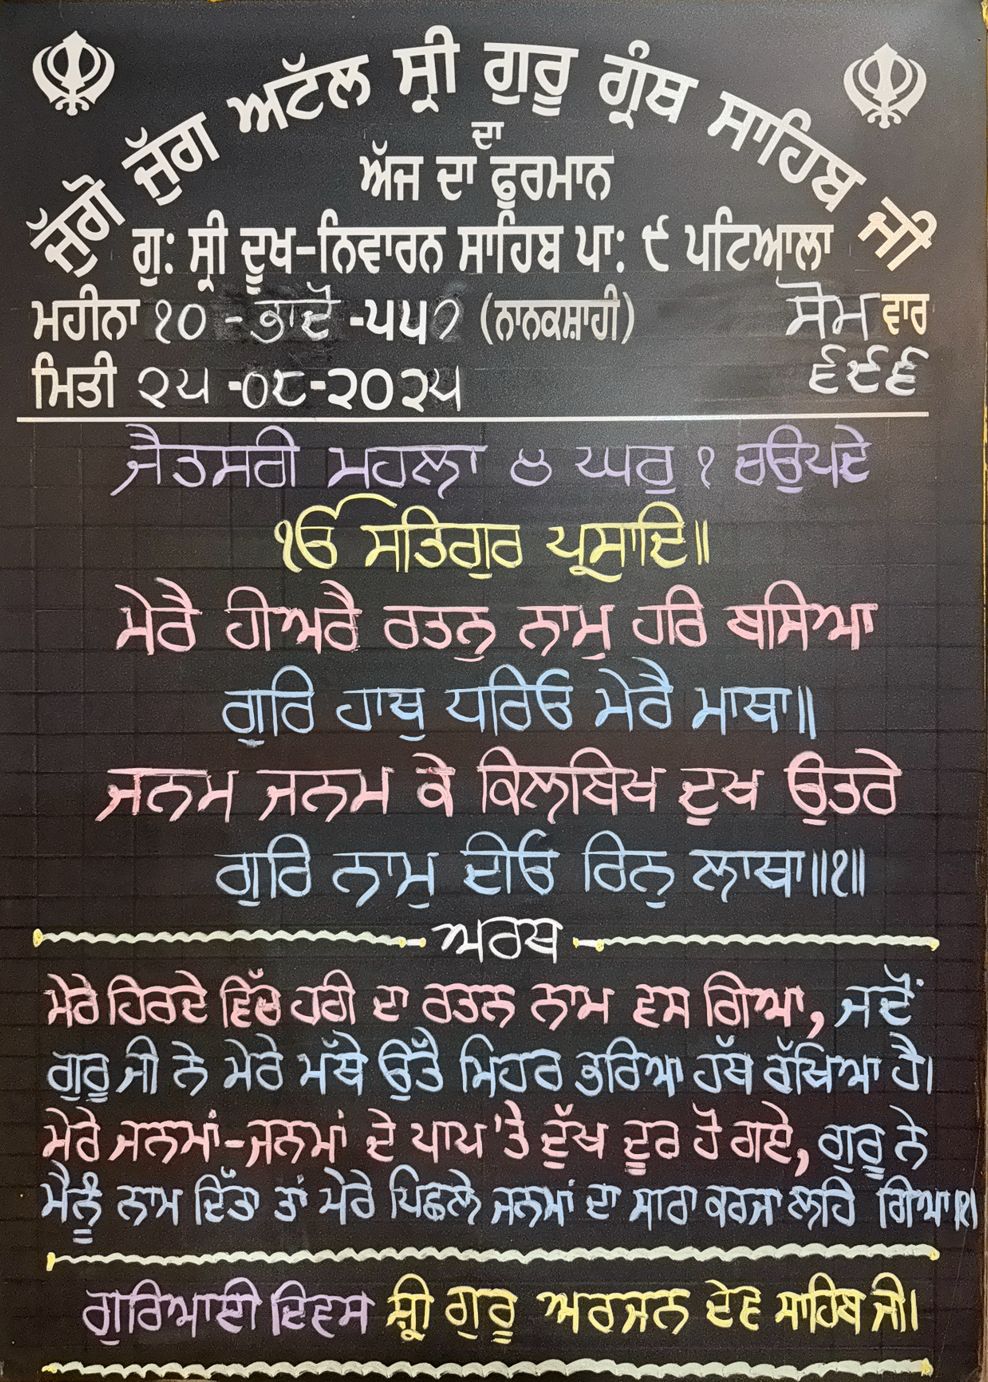 ਜੁੱਗੋ ਜੁੱਗ ਅਟੱਲ ਸ੍ਰੀ ਗੁਰੂ ਗ੍ਰੰਥ ਸਾਹਿਬ ਜੀ
ਦਾ
ਅੱਜ ਦਾ ਫੁਰਮਾਨ
ਗੁ: ਸ੍ਰੀ ਦੂਖ-ਨਿਵਾਰਨ ਸਾਹਿਬ ਪਾ: ੯ ਪਟਿਆਲਾ
ਮਹੀਨਾ ੧੦ - ਭਾਦੋਂ -੫੫੭ (ਨਾਨਕਸ਼ਾਹੀ) ਸੋਮ ਵਾਰ
ਮਿਤੀ ੨੫ -੦੮-੨੦੨੫ ੬੯੬
ਜੈਤਸਰੀ ਮਹਲਾ ੪ ਘਰੁ ੧ ਚਉਪਦੇ
ੴ ਸਤਿਗੁਰ ਪ੍ਰਸਾਦਿ॥
ਮੇਰੈ ਹੀਅਰੈ ਰਤਨੁ ਨਾਮੁ ਹਰਿ ਬਸਿਆ
ਗੁਰਿ ਹਾਥੁ ਧਰਿਓ ਮੇਰੈ ਮਾਥਾ॥
ਜਨਮ ਜਨਮ ਕੇ ਕਿਲਬਿਖ ਦੁਖ ਉਤਰੇ
ਗੁਰਿ ਨਾਮੁ ਦੀਓ ਰਿਨੁ ਲਾਥਾ॥੧॥
ਅਰਥ
ਮੇਰੇ ਹਿਰਦੇ ਵਿੱਚ ਹਰੀ ਦਾ ਰਤਨ ਨਾਮ ਵਸ ਗਿਆ, ਜਦੋਂ
ਗੁਰੂ ਜੀ ਨੇ ਮੇਰੇ ਮੱਥੇ ਉੱਤੇ ਮਿਹਰ ਭਰਿਆ ਹੱਥ ਰੱਖਿਆ ਹੈ।
ਮੇਰੇ ਜਨਮਾਂ-ਜਨਮਾਂ ਦੇ ਪਾਪ 'ਤੇ ਦੁੱਖ ਦੂਰ ਹੋ ਗਏ, ਗੁਰੂ ਨੇ
ਮੈਨੂੰ ਨਾਮ ਦਿੱਤਾ ਤਾਂ ਮੇਰੇ ਪਿਛਲੇ ਜਨਮਾਂ ਦਾ ਸਾਰਾ ਕਰਜਾ ਲਹਿ ਗਿਆ।੧।
ਗੁਰਿਆਈ ਦਿਵਸ ਸ਼੍ਰੀ ਗੁਰੂ ਅਰਜਨ ਦੇਵ ਸਾਹਿਬ ਜੀ।